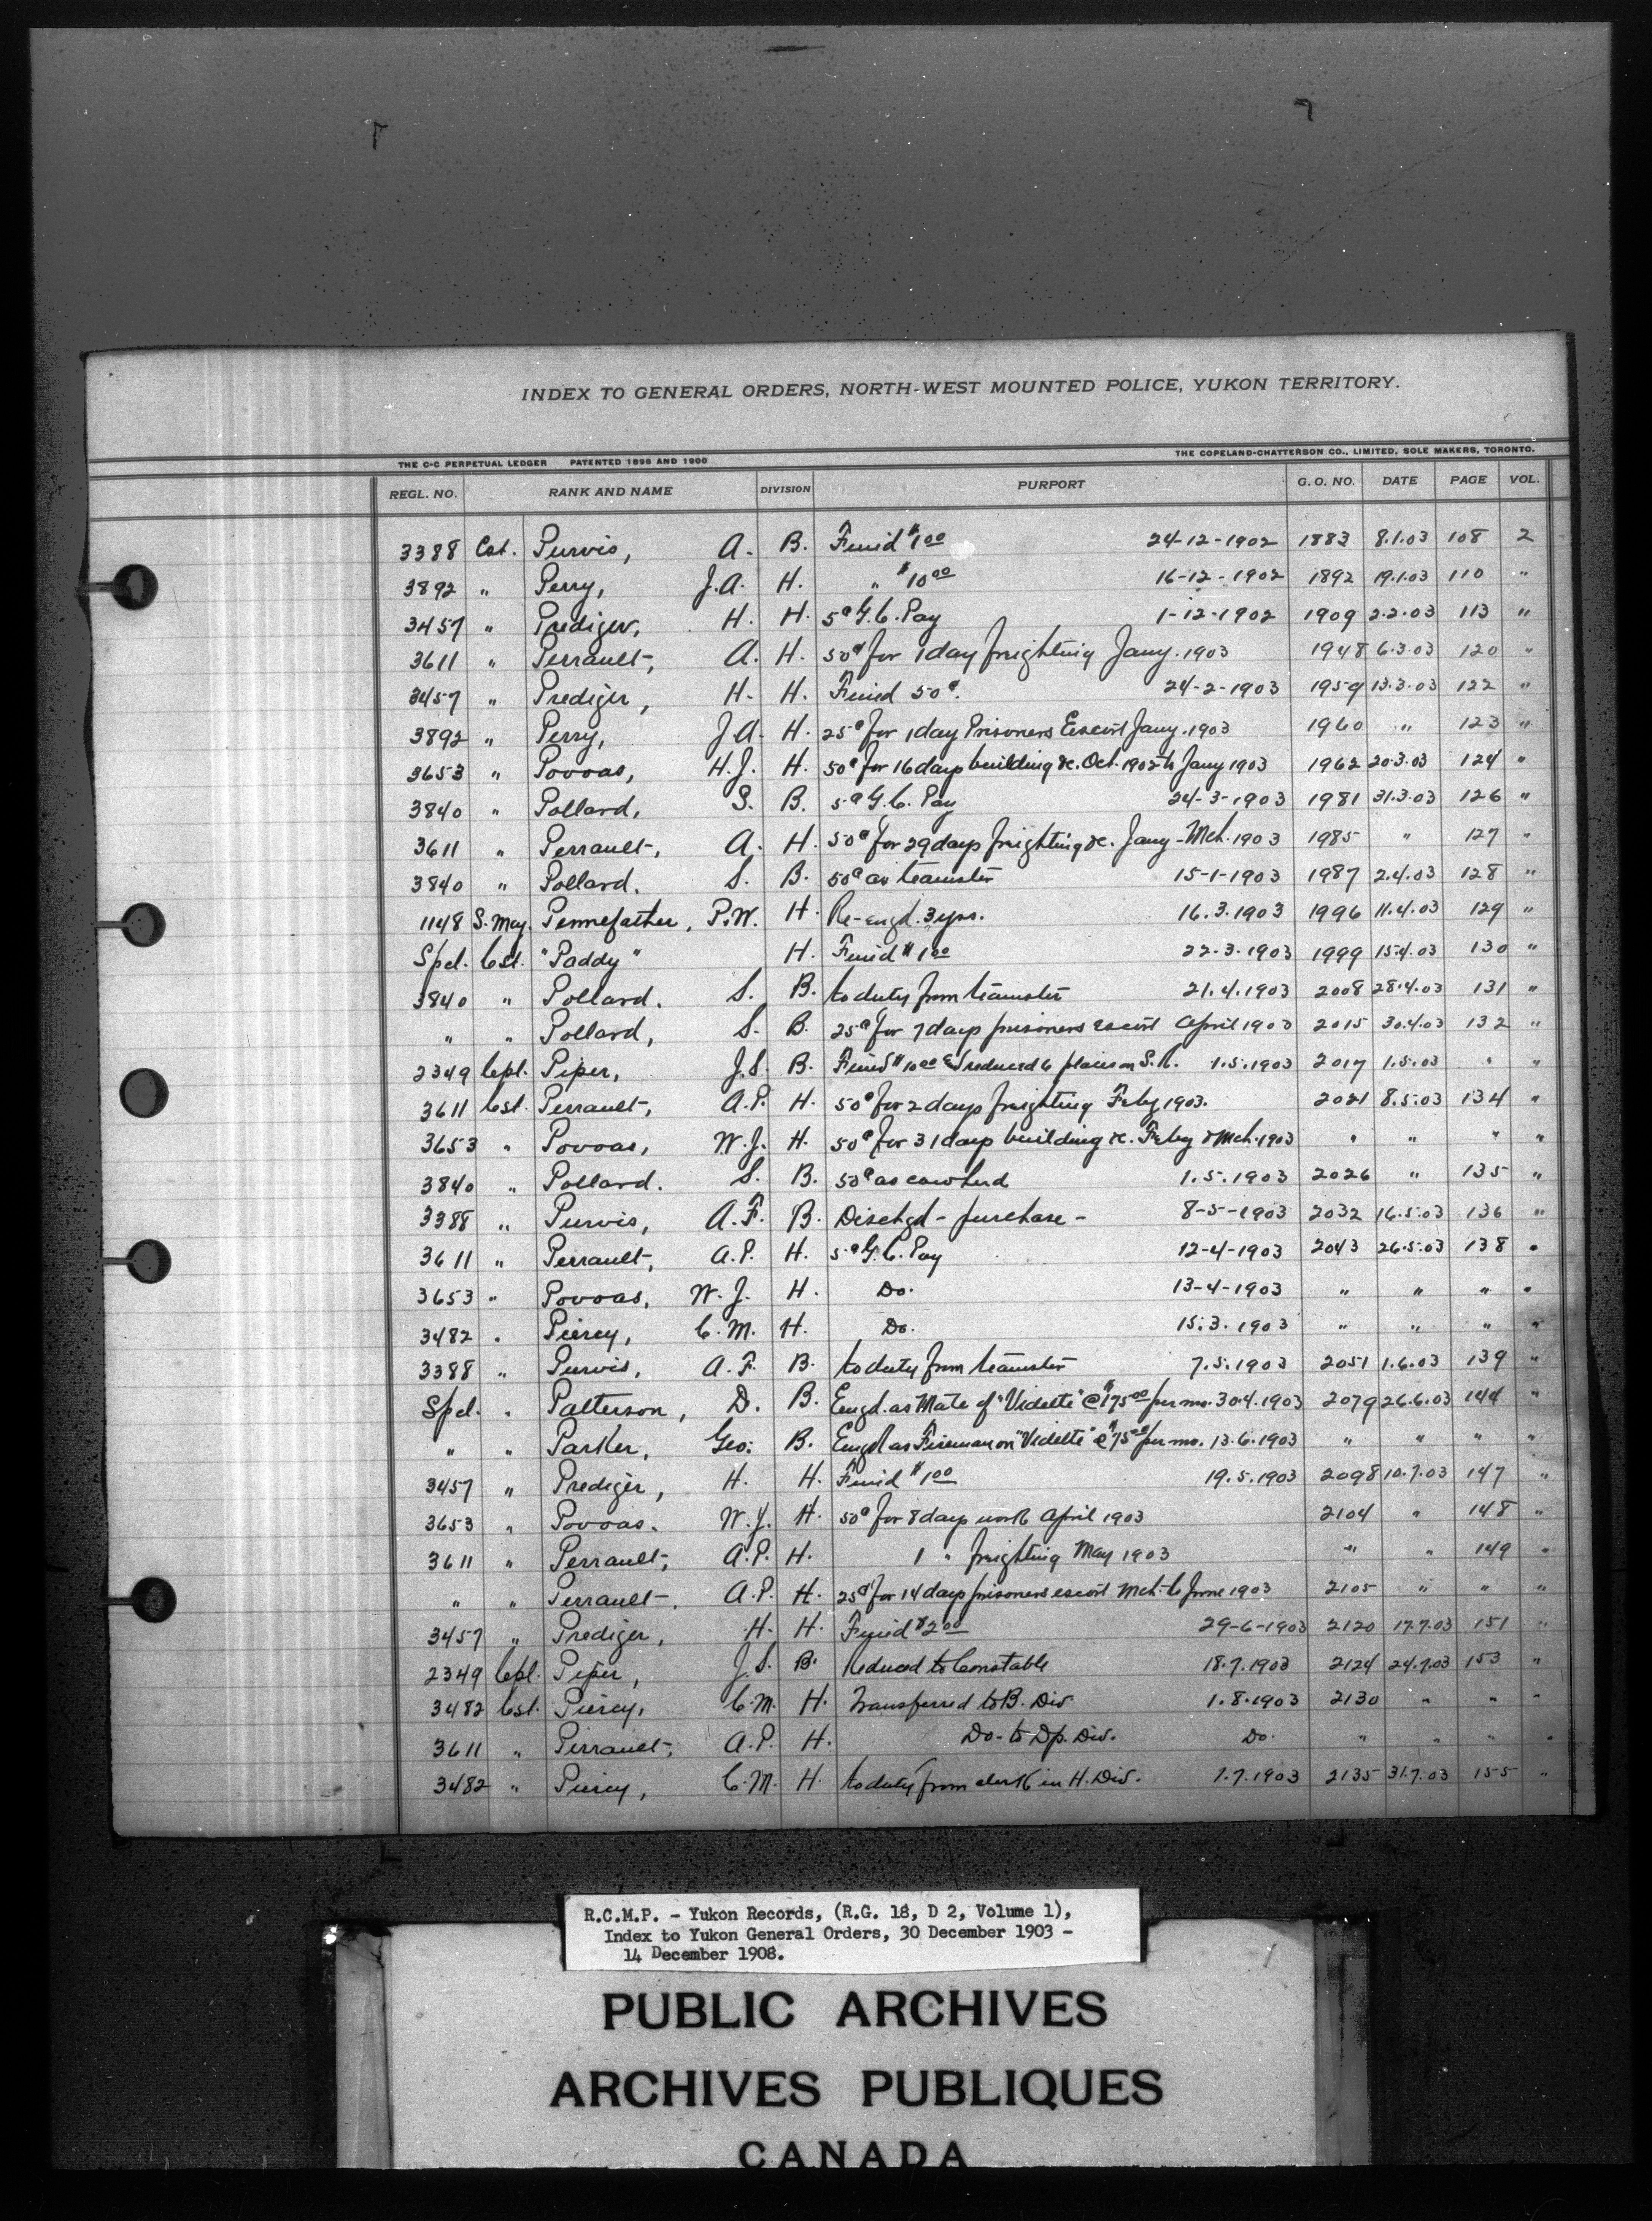 INDEX TO GENERAL ORDERS, NORTH-WEST MOUNTED POLICE, YUKON TERRITORY.
THE C-C PERPETUAL LEDGER PATENTED 1896 AND 1900 THE COPELAND-CHATTERSON CO., LIMITED, SOLE MAKERS, TORONTO.
REGL. NO. RANK AND NAME DIVISION PURPORT G. O. NO. DATE PAGE VOL.
3388 Cst. Purvis, A. B. Fined $1 00 24-12-1902 1883 8.1.03 108 2
3892 " Perry, J.A. H. " $10 00 16-12-1902 1892 19.1.03 110 "
3457 " Prediger, H. H. 5¢ G.C. Pay 1-12-1902 1909 2.2.03 113 "
3611 " Perrault, A. H. 50¢ for 1 day freighting Jany. 1903 1948 6.3.03 120 "
3457 " Prediger, H. H. Fined 50¢. 24-2-1903 1959 13.3.03 122 "
3892 " Perry, J.A. H. 25¢ for 1 day Prisoners Escort Jany. 1903 1960 " 123 "
3653 " Povoas, H.J. H. 50¢ for 16 days building &c. Oct. 1902 to Jany 1903 1962 20.3.03 124 "
3840 " Pollard, S. B. 5¢ G.C. Pay 24-3-1903 1981 31.3.03 126 "
3611 " Perrault, A. H. 50¢ for 29 days freighting &c. Jany-Mch. 1903 1985 " 127 "
3840 " Pollard. S. B. 50¢ as teamster 15-1-1903 1987 2.4.03 128 "
1148 S. Maj. Pennefather, P.W. H. Re-engd. 3 yrs. 16.3.1903 1996 11.4.03 129 "
Spcl. Cst. "Paddy" H. Fined $1 00 22-3-1903 1999 15.4.03 130 "
3840 " Pollard. S. B. to duty from teamster 21.4.1903 2008 28.4.03 131 "
" " Pollard, S. B. 25¢ for 7 days prisoners escort April 1903 2015 30.4.03 132 "
2349 Cpl. Piper, J.S. B. Fined $10 00 & reduced 6 places on S.R. 1.5.1903 2017 1.5.03 " "
3611 Cst. Perrault, A.P. H. 50¢ for 2 days freighting Feby 1903. 2021 8.5.03 134 "
3653 " Povoas, W.J. H. 50¢ for 31 days building &c. Feby & Mch. 1903 " " " "
3840 " Pollard. S. B. 50¢ as cowherd 1.5.1903 2026 " 135 "
3388 " Purvis, A.F. B. Dischgd - purchase - 8-5-1903 2032 16.5.03 136 "
3611 " Perrault, A.P. H. 5¢ G.C. Pay 12-4-1903 2043 26.5.03 138 "
3653 " Povoas, W.J. H. Do. 13-4-1903 " " " "
3482 " Piercy, C.M. H. Do. 15.3.1903 " " " "
3388 " Purvis, A.F. B. to duty from teamster 7.5.1903 2051 1.6.03 139 "
Spcl. " Patterson, D. B. Engd. as Mate of "Vidette" @ $175 00 per mo. 30.4.1903 2079 26.6.03 144 "
" " Parker, Geo: B. Engd as Fireman on "Vidette" @ $75 00 per mo. 13.6.1903 " " " "
3457 " Prediger, H. H. Fined $1 00 19.5.1903 2098 10.7.03 147 "
3653 " Povoas. W.J. H. 50¢ for 8 days work April 1903 2104 " 148 "
3611 " Perrault, A.P. H. 1 " freighting May 1903 " " 149 "
" " Perrault, A.P. H. 25¢ for 14 days prisoners escort Mch. to June 1903 2105 " " "
3457 " Prediger, H. H. Fined $2 00 29-6-1903 2120 17.7.03 151 "
2349 Cpl. Piper, J.S. B. Reduced to Constable 18.7.1903 2124 24.7.03 153 "
3482 Cst. Piercy, C.M. H. Transferred to B. Div. 1.8.1903 2130 " " "
3611 " Perrault, A.P. H. Do. to Dp. Div. Do. " " " "
3482 " Piercy, C.M. H. to duty from clerk in H. Div. 1.7.1903 2135 31.7.03 155 "
R.C.M.P. - Yukon Records, (R.G. 18, D 2, Volume 1),
Index to Yukon General Orders, 30 December 1903 -
14 December 1908.
PUBLIC ARCHIVES
ARCHIVES PUBLIQUES
CANADA